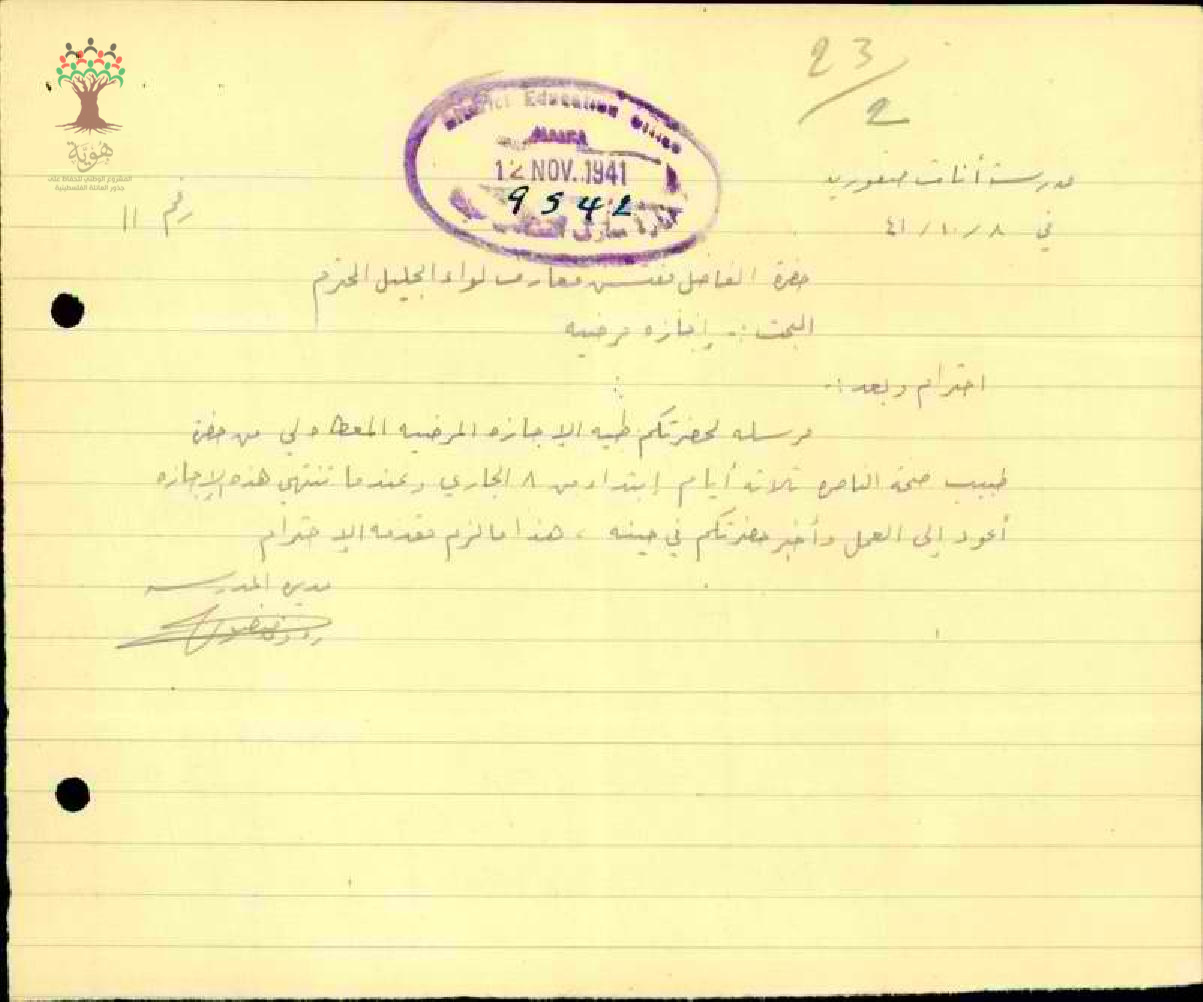 23/2
هوية
المشروع الوطني للحفاظ على
جذور العائلة الفلسطينية
District Education Office
HAIFA
12 NOV. 1941
9542
مدرسة أناث صفوريه
في ٨ / ١٠ / ٤١
رقم ١١
حضرة الفاضل مفتش معارف لواء الجليل المحترم
البحث :- إجازه مرضيه
احترام وبعد :-
مرسله لحضرتكم طيه الاجازه المرضيه المعطاه لي من حضرة
طبيب صحة الناصره ثلاثه أيام إبتداء من ٨ الجاري وعندما تنتهي هذه الإجازه
أعود إلى العمل وأخبر حضرتكم في حينه ، هذا ما لزم مقدمه الاحترام
مديرة المدرسه